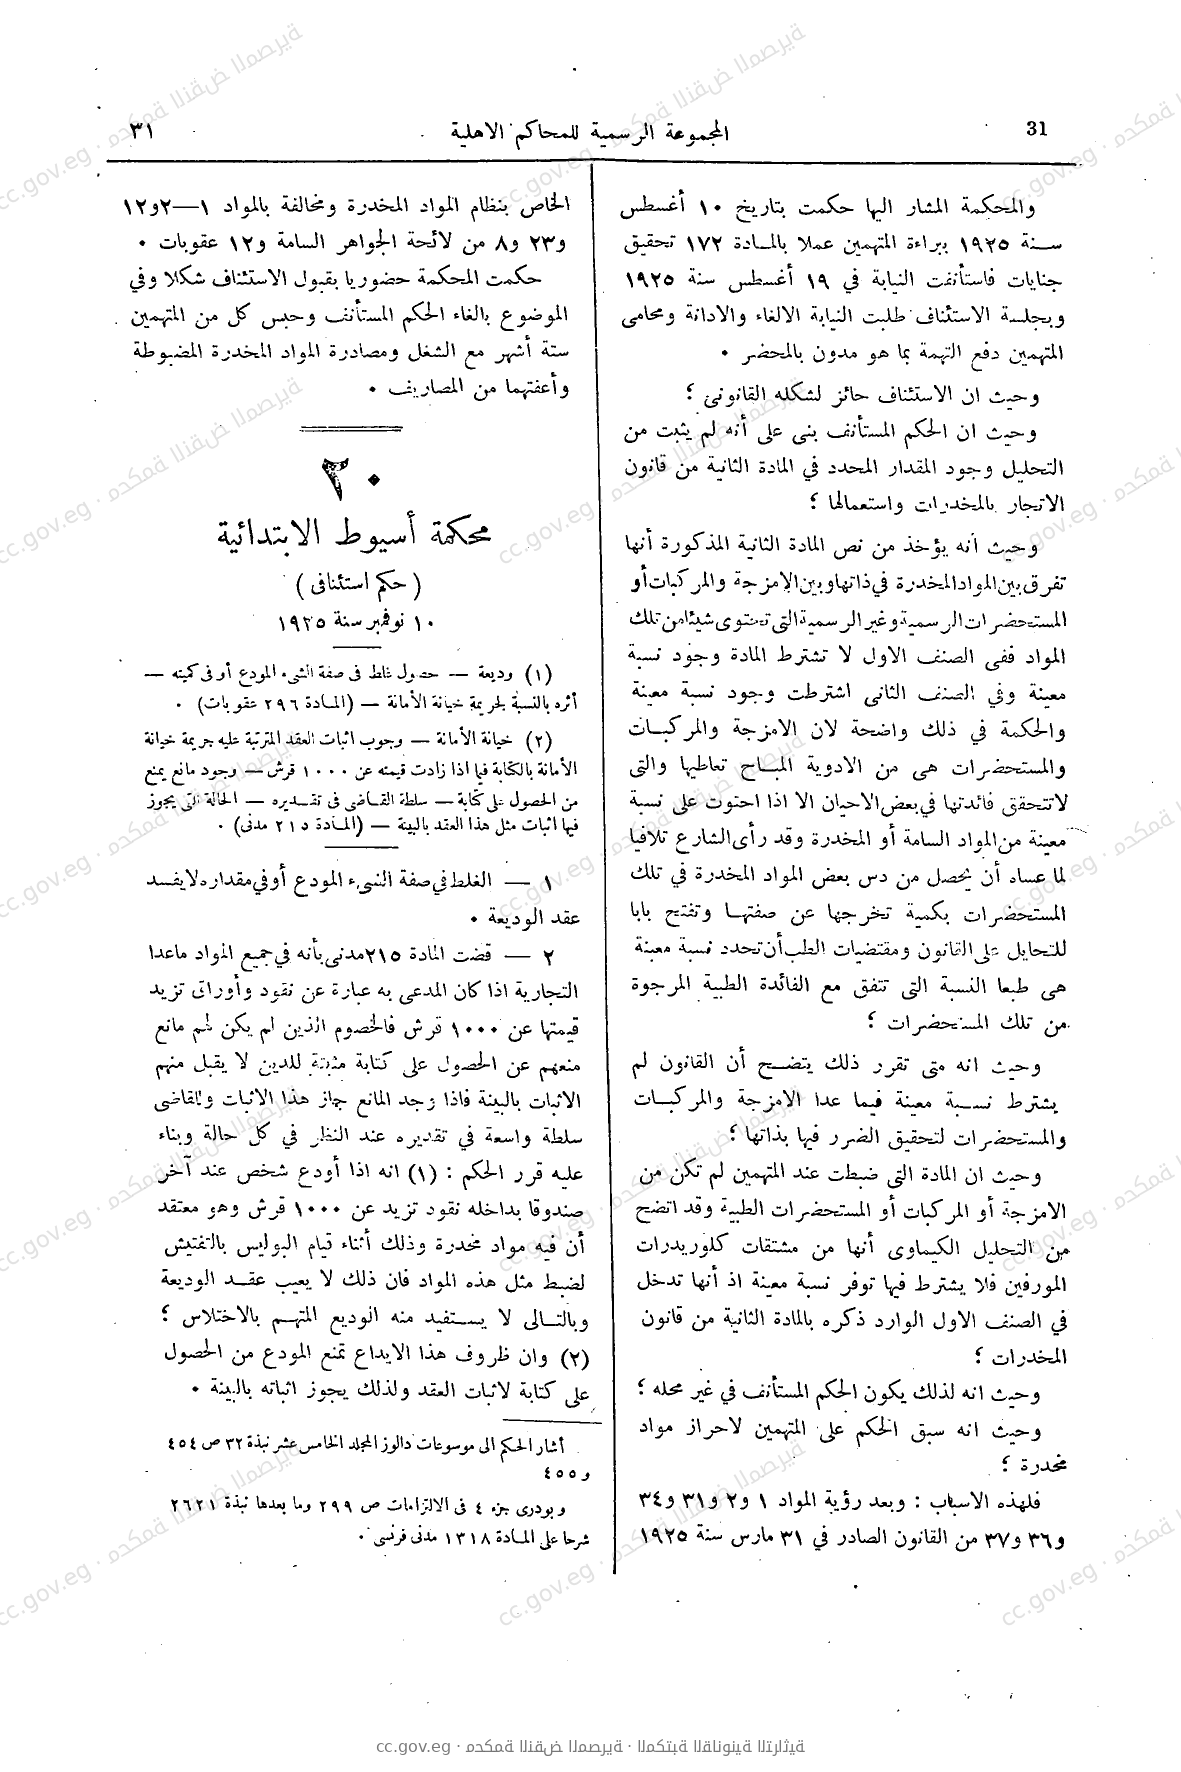 31
المجموعة الرسمية للمحاكم الاهلية
٣١
والمحكمة المشار اليها حكمت بتاريخ ١٠ أغسطس
سنة ١٩٢٥ ببراءة المتهمين عملا بالمادة ١٧٢ تحقيق
جنايات فاستأنفت النيابة في ١٩ أغسطس سنة ١٩٢٥
وبجلسة الاستئناف طلبت النيابة الالغاء والادانة ومحامى
المتهمين دفع التهمة بما هو مدون بالمحضر .
وحيث ان الاستئناف حائز لشكله القانونى ؛
وحيث ان الحكم المستأنف بنى على أنه لم يثبت من
التحليل وجود المقدار المحدد في المادة الثانية من قانون
الاتجار بالمخدرات واستعمالها ؛
وحيث أنه يؤخذ من نص المادة الثانية المذكورة أنها
تفرق بين المواد المخدرة في ذاتها وبين الامزجة والمركبات أو
المستحضرات الرسمية وغير الرسمية التى تحتوى شيئا من تلك
المواد ففى الصنف الاول لا تشترط المادة وجود نسبة
معينة وفي الصنف الثانى اشترطت وجود نسبة معينة
والحكمة في ذلك واضحة لان الامزجة والمركبات
والمستحضرات هى من الادوية المباح تعاطيها والتى
لا تتحقق فائدتها في بعض الاحيان الا اذا احتوت على نسبة
معينة من المواد السامة أو المخدرة وقد رأى الشارع تلافيا
لما عساه أن يحصل من دس بعض المواد المخدرة في تلك
المستحضرات بكمية تخرجها عن صفتها وتفتح بابا
للتحايل على القانون ومقتضيات الطب أن تحدد نسبة معينة
هى طبعا النسبة التى تتفق مع الفائدة الطبية المرجوة
من تلك المستحضرات ؛
وحيث انه متى تقرر ذلك يتضح أن القانون لم
يشترط نسبة معينة فيما عدا الامزجة والمركبات
والمستحضرات لتحقيق الضرر فيها بذاتها ؛
وحيث ان المادة التى ضبطت عند المتهمين لم تكن من
الامزجة أو المركبات أو المستحضرات الطبية وقد اتضح
من التحليل الكيماوى أنها من مشتقات كلوريدرات
المورفين فلا يشترط فيها توفر نسبة معينة اذ أنها تدخل
في الصنف الاول الوارد ذكره بالمادة الثانية من قانون
المخدرات ؛
وحيث انه لذلك يكون الحكم المستأنف في غير محله ؛
وحيث انه سبق الحكم على المتهمين لاحراز مواد
مخدرة ؛
فلهذه الاسباب : وبعد رؤية المواد ١ و٢ و٣١ و٣٤
و٣٦ و٣٧ من القانون الصادر في ٣١ مارس سنة ١٩٢٥
الخاص بنظام المواد المخدرة ومخالفة بالمواد ١—٢و١٢
و٢٣ و٨ من لائحة الجواهر السامة و١٢ عقوبات .
حكمت المحكمة حضوريا بقبول الاستئناف شكلا وفي
الموضوع بالغاء الحكم المستأنف وحبس كل من المتهمين
ستة أشهر مع الشغل ومصادرة المواد المخدرة المضبوطة
وأعفتهما من المصاريف .
٢٠
محكمة أسيوط الابتدائية
( حكم استئنافى )
١٠ نوفمبر سنة ١٩٢٥
(١) وديعة — حصول غلط فى صفة الشىء المودع أو فى كميته —
أثره بالنسبة لجريمة خيانة الأمانة — (المادة ٢٩٦ عقوبات) .
(٢) خيانة الأمانة — وجوب اثبات العقد المترتبة عليه جريمة خيانة
الأمانة بالكتابة فيما اذا زادت قيمته عن ١٠٠٠ قرش — وجود مانع يمنع
من الحصول على كتابة — سلطة القاضى فى تقديره — الحالة التى يجوز
فيها اثبات مثل هذا العقد بالبينة — (المادة ٢١٥ مدنى) .
١ — الغلط في صفة الشىء المودع أو في مقداره لا يفسد
عقد الوديعة .
٢ — قضت المادة ٢١٥ مدنى بأنه في جميع المواد ماعدا
التجارية اذا كان المدعى به عبارة عن نقود وأوراق تزيد
قيمتها عن ١٠٠٠ قرش فالخصوم الذين لم يكن لهم مانع
منعهم عن الحصول على كتابة مثبتة للدين لا يقبل منهم
الاثبات بالبينة فاذا وجد المانع جاز هذا الاثبات وللقاضى
سلطة واسعة في تقديره عند النظر في كل حالة وبناء
عليه قرر الحكم : (١) انه اذا أودع شخص عند آخر
صندوقا بداخله نقود تزيد عن ١٠٠٠ قرش وهو معتقد
أن فيه مواد مخدرة وذلك أثناء قيام البوليس بالتفتيش
لضبط مثل هذه المواد فان ذلك لا يعيب عقد الوديعة
وبالتالى لا يستفيد منه الوديع المتهم بالاختلاس ؛
(٢) وان ظروف هذا الايداع تمنع المودع من الحصول
على كتابة لاثبات العقد ولذلك يجوز اثباته بالبينة .
أشار الحكم الى موسوعات دالوز المجلد الخامس عشر نبذة ٣٢ ص ٤٥٤
و ٤٥٥
وبودرى جزء ٤ فى الالتزامات ص ٢٩٩ وما بعدها نبذة ٢٦٢١
شرحا على المادة ١٣١٨ مدنى فرنسى .
cc.gov.eg · محكمة النقض المصرية · المكتبة القانونية التراثية